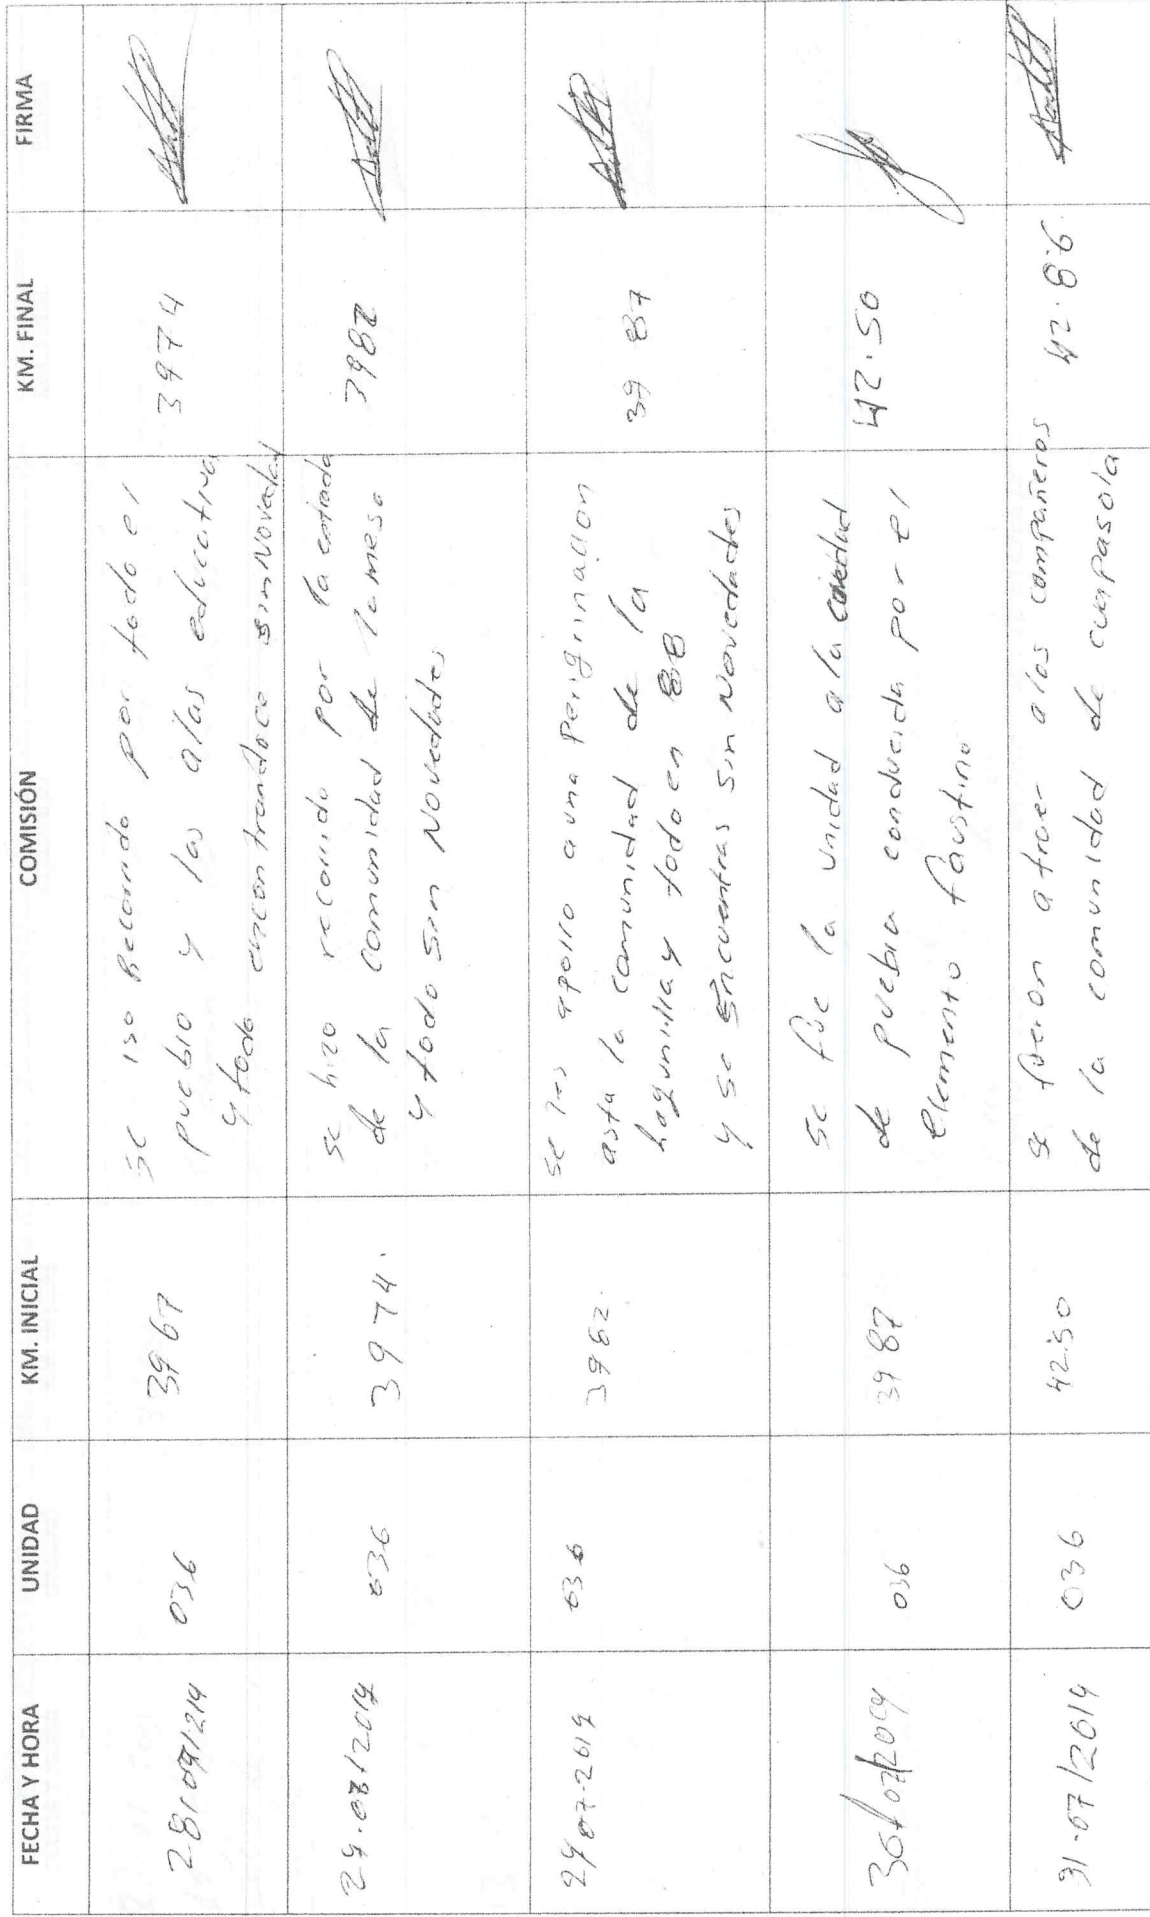 FECHA Y HORA UNIDAD KM. INICIAL COMISIÓN KM. FINAL FIRMA
036 3967 se iso Recorrido por todo el 3974
pueblo y las alas educativa
y todo encontrandoce sin Novedad
29-07/2019 036 3974. se hizo recorrido por la entrada 3982
de la comunidad de la mesa
y todo sin Novedades
29 07-2019 036 3982. se les apollo a una Perignnacion 39 87
asta la comunidad de la
lagunilla y todo en BB
y se Encuentras sin Novedades
30/07/2019 036 3987 se fue la unidad a la cuidad 42.50
de puebla conducida por el
elemento faustino
31-07/2019 036 42.50 se fueron atraer a los compañeros 42.86.
de la comunidad de cuapasola